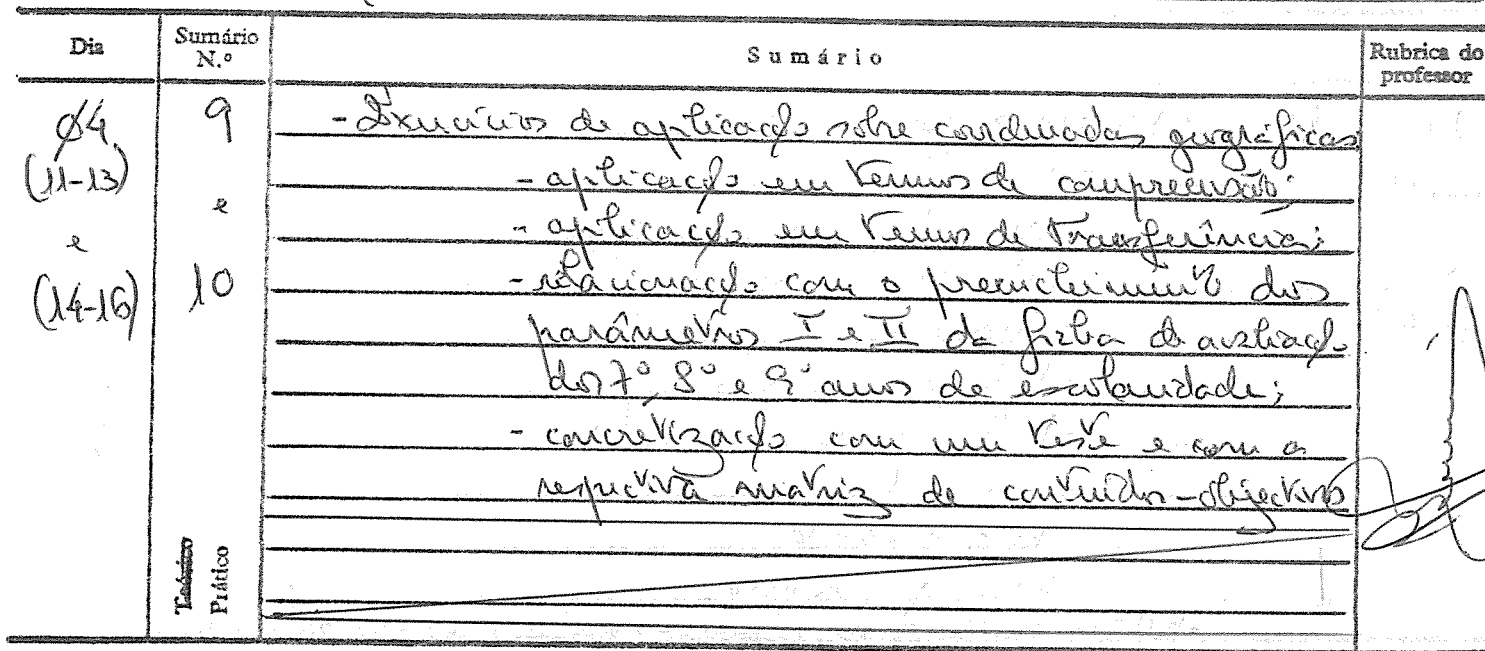 Dia
Sumário N.º
Sumário
Rubrica do professor
04 (11-13) e (14-16)
9 e 10
- Exercícios de aplicação sobre coordenadas geográficas
- aplicação em termos de compreensão;
- aplicação em termos de transferência;
- relacionação com o preenchimento dos
parâmetros I e II da ficha de avaliação
dos 7º 8º e 9º anos de escolaridade;
- concretização com um teste e com a
respectiva matriz de conteúdos-objectivos
Teórico
Prático